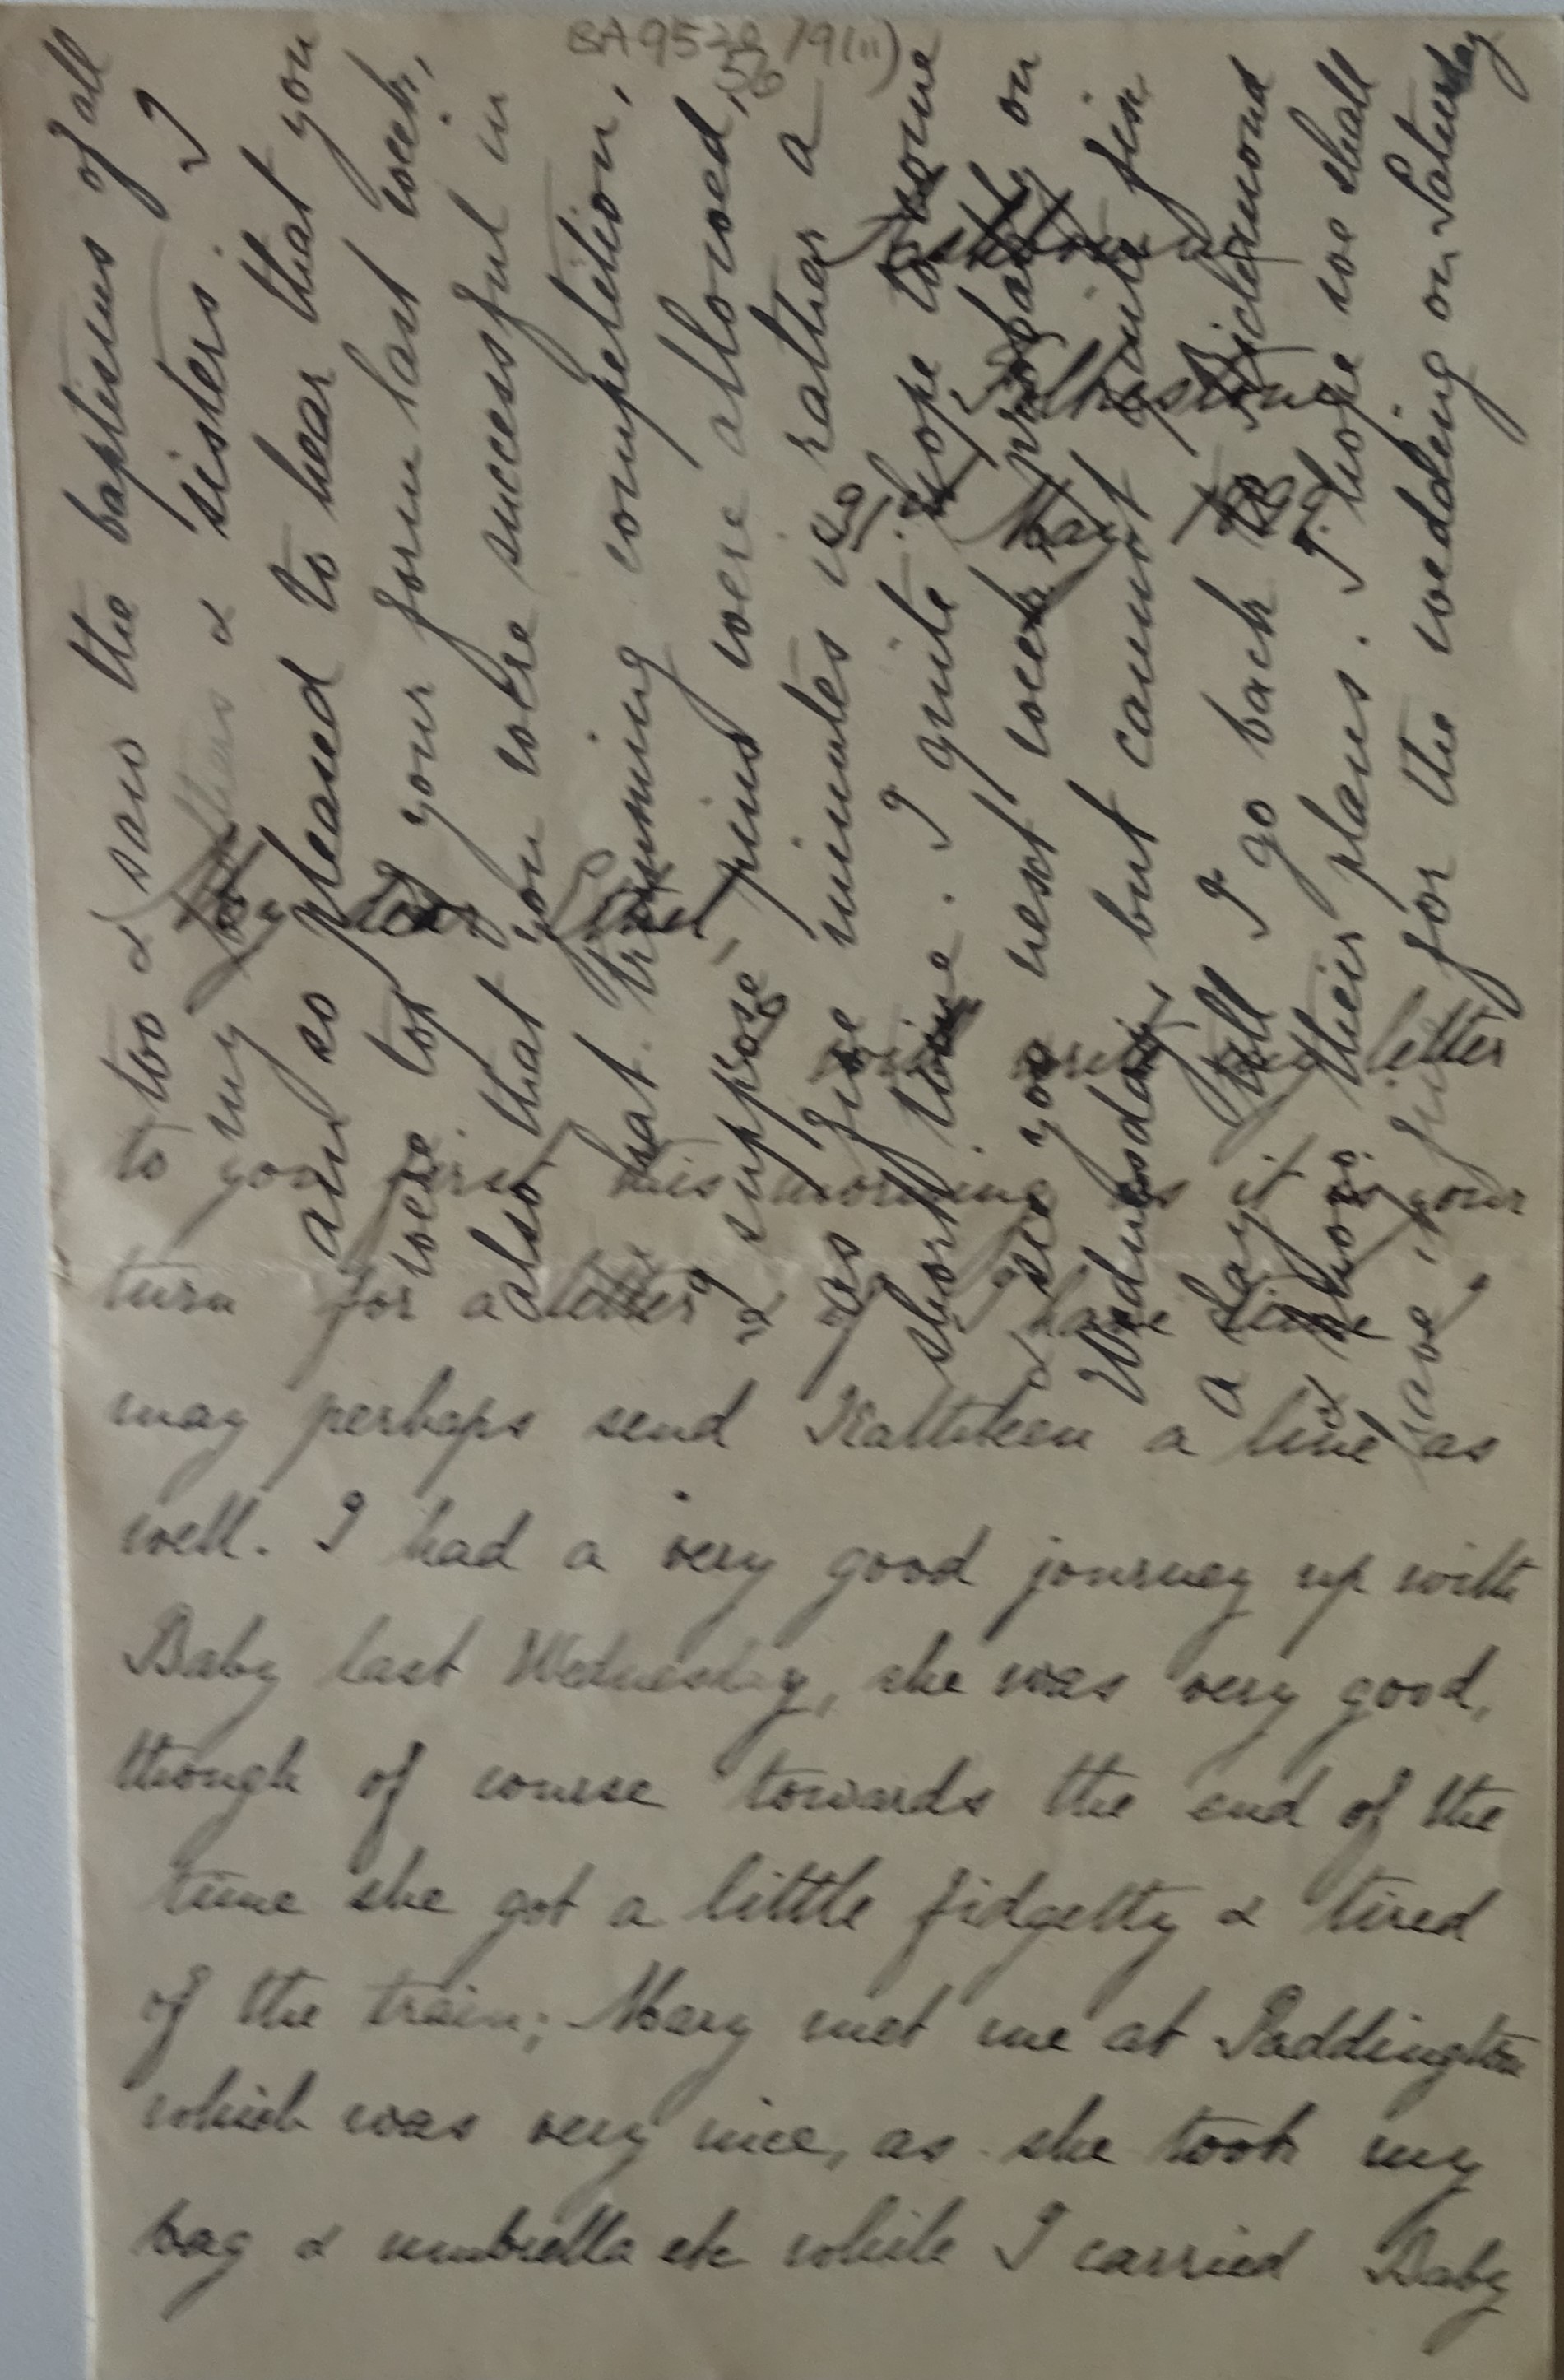 BA 9520 /9(ii)
56
Ashdown
Folkestone
31st May 1899.
My dear Ethel,
I will write my letter
to you first this morning as it is your
turn for a letter & if I have time I
may perhaps send Kathleen a line as
well. I had a very good journey up with
Baby last Wednesday, she was very good,
though of course towards the end of the
time she got a little fidgetty & tired
of the train; Mary met me at Paddington
which was very nice, as she took my
bag & umbrella etc while I carried Baby
too & saw the baptisms of all
my brothers & sisters. I
am so pleased to hear that you
were top of your form last week,
also that you were successful in
hat trimming competition,
I suppose pins were allowed,
as five minutes is rather a
short time. I quite hope to come
& see you next week, probably on
Wednesday, but cannot quite fix
a day till I go back
& know their plans. I hope we shall
have it fine for the wedding on Saturday